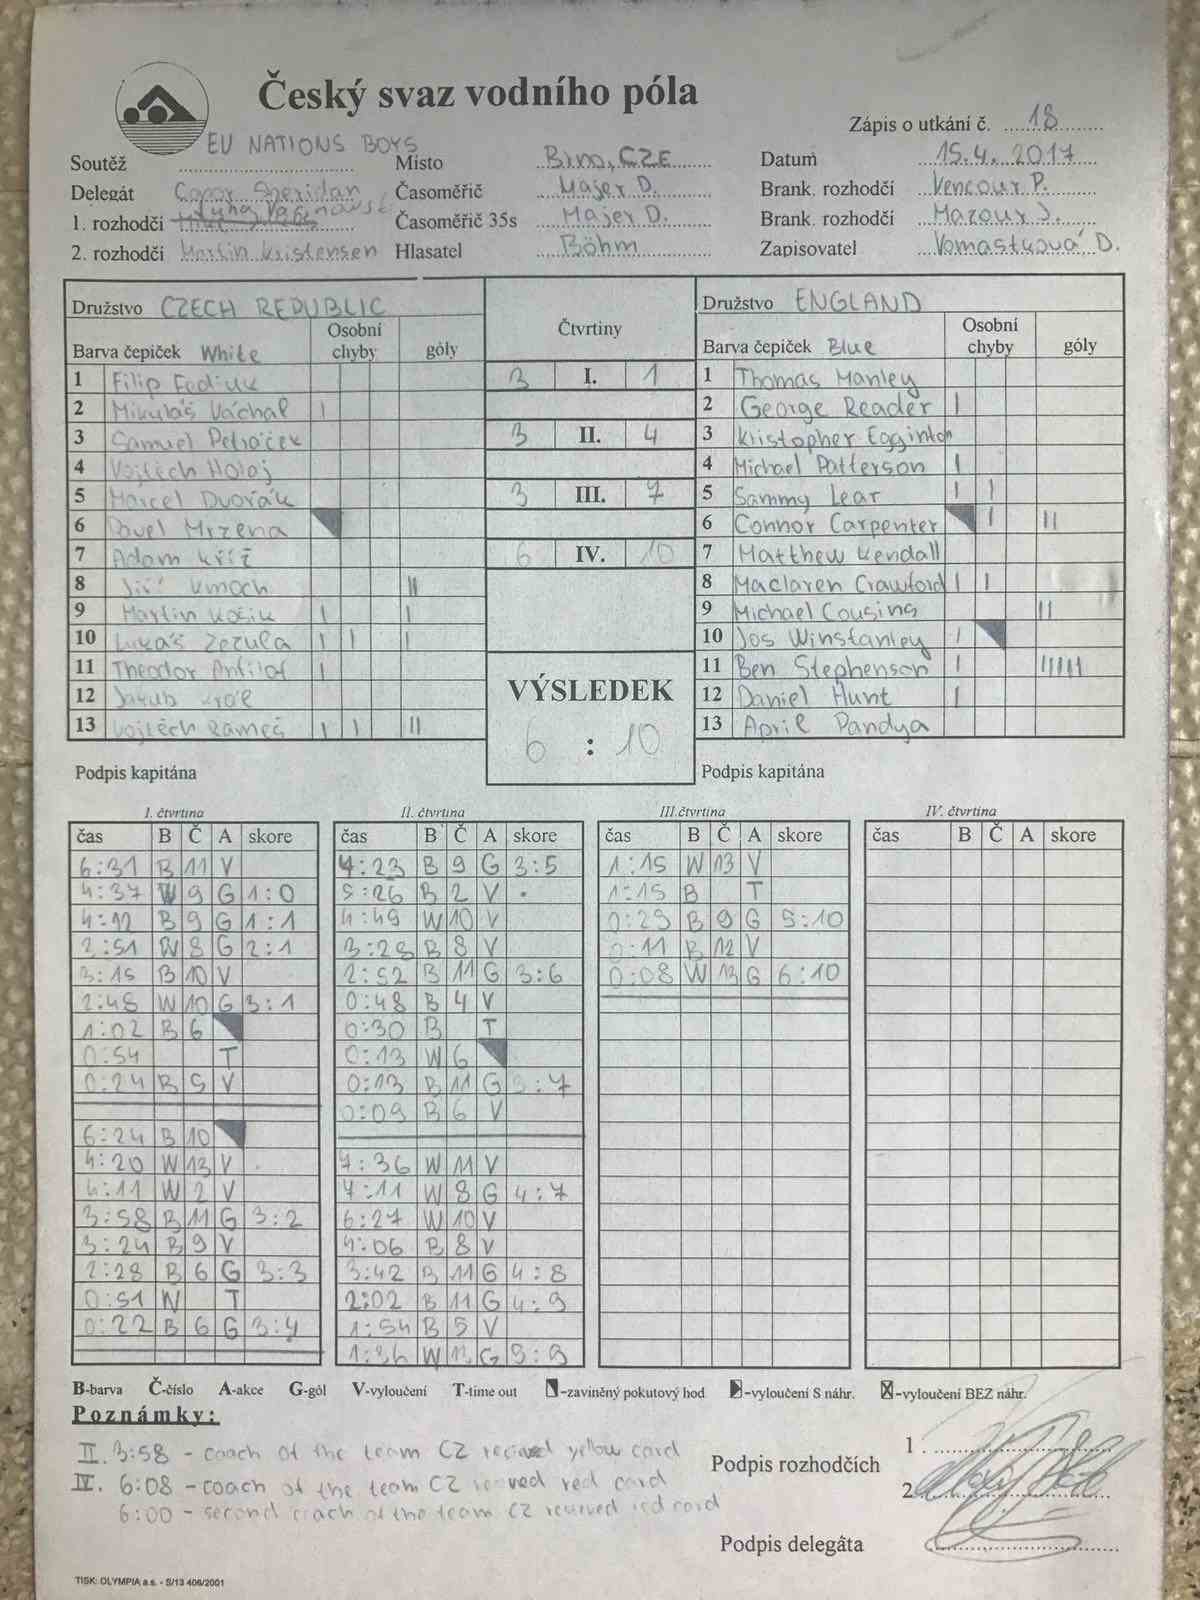 Český svaz vodního póla
Zápis o utkání č. 18
EU NATIONS BOYS
Soutěž Místo Brno, CZE Datum 15.4. 2017
Delegát Sheridan Časoměřič Majer D. Brank. rozhodčí Vencour P.
1. rozhodčí Časoměřič 35s Majer D. Brank. rozhodčí Mazour J.
2. rozhodčí Martin Kristensen Hlasatel Böhm Zapisovatel Vomastková D.
Družstvo CZECH REPUBLIC Čtvrtiny Družstvo ENGLAND
Barva čepiček White Osobní chyby góly Barva čepiček Blue Osobní chyby góly
1 Filip Fediuk 3 I. 1 1 Thomas Manley
2 Mikuláš Váchal I 2 George Reader I
3 Samuel Petráček 3 II. 4 3 Kristopher Egginton
4 Vojtěch Holoj 4 Michael Patterson I
5 Marcel Dvořák 3 III. 7 5 Sammy Lear I I
6 Pavel Mrzena 6 Connor Carpenter I II
7 Adam Kříž 6 IV. 10 7 Matthew Kendall
8 Jiří Kmoch II 8 Maclaren Crawford I I
9 Martin Košik I I 9 Michael Cousing II
10 Lukáš Zezula I I I 10 Jos Winstanley I
11 Theodor I VÝSLEDEK 11 Ben Stephenson I IIIII
12 Jakub 12 Daniel Hunt I
13 Vojtěch I I II 6 : 10 13 April Pandya
Podpis kapitána Podpis kapitána
I. čtvrtina II. čtvrtina III. čtvrtina IV. čtvrtina
čas B Č A skore čas B Č A skore čas B Č A skore čas B Č A skore
6:31 B 11 V 4:23 B 9 G 3:5 1:15 W 13 V
4:37 W 9 G 1:0 5:26 B 2 V 1:15 B T
4:12 B 9 G 1:1 4:49 W 10 V 0:29 B 9 G 5:10
2:51 W 8 G 2:1 3:28 B 8 V 0:11 B 12 V
3:15 B 10 V 2:52 B 11 G 3:6 0:08 W 13 G 6:10
2:48 W 10 G 3:1 0:48 B 4 V
1:02 B 6 0:30 B T
0:54 T 0:13 W 6
0:24 B 5 V 0:13 B 11 G 3:7
0:09 B 6 V
6:24 B 10
4:20 W 13 V 7:36 W 11 V
4:11 W 2 V 7:11 W 8 G 4:7
3:58 B 11 G 3:2 6:27 W 10 V
3:24 B 9 V 4:06 B 8 V
2:28 B 6 G 3:3 3:42 B 11 G 4:8
0:51 W T 2:02 B 11 G 4:9
0:22 B 6 G 3:4 1:54 B 5 V
1:36 W 13 G
B-barva Č-číslo A-akce G-gól V-vyloučení T-time out -zaviněný pokutový hod -vyloučení S náhr. -vyloučení BEZ náhr.
Poznámky:
II. 3:58 - coach of the team CZ recived yellow card
IV. 6:08 - coach of the team CZ recived red card
6:00 - second coach of the team CZ recived red card
Podpis rozhodčích 1.
2.
Podpis delegáta
TISK: OLYMPIA a.s. - S/13 406/2001